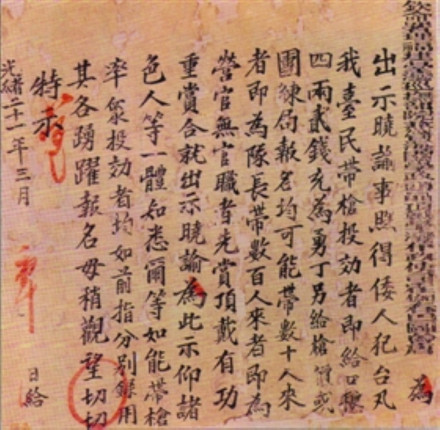 為
出示曉諭事照得倭人犯台凡
我臺民帶槍投効者即給口糧
四兩貳錢充為勇丁另給槍價或
團練局報名均可能帶數十人來
者即為隊長帶數百人來者即為
營官無官職者先賞頂戴有功
重賞合就出示曉諭為此示仰諸
色人等一體知悉爾等如能帶槍
率眾投効者均如前指分別錄用
其各踴躍報名毋稍觀望切切
特示
光緒二十一年三月 日給